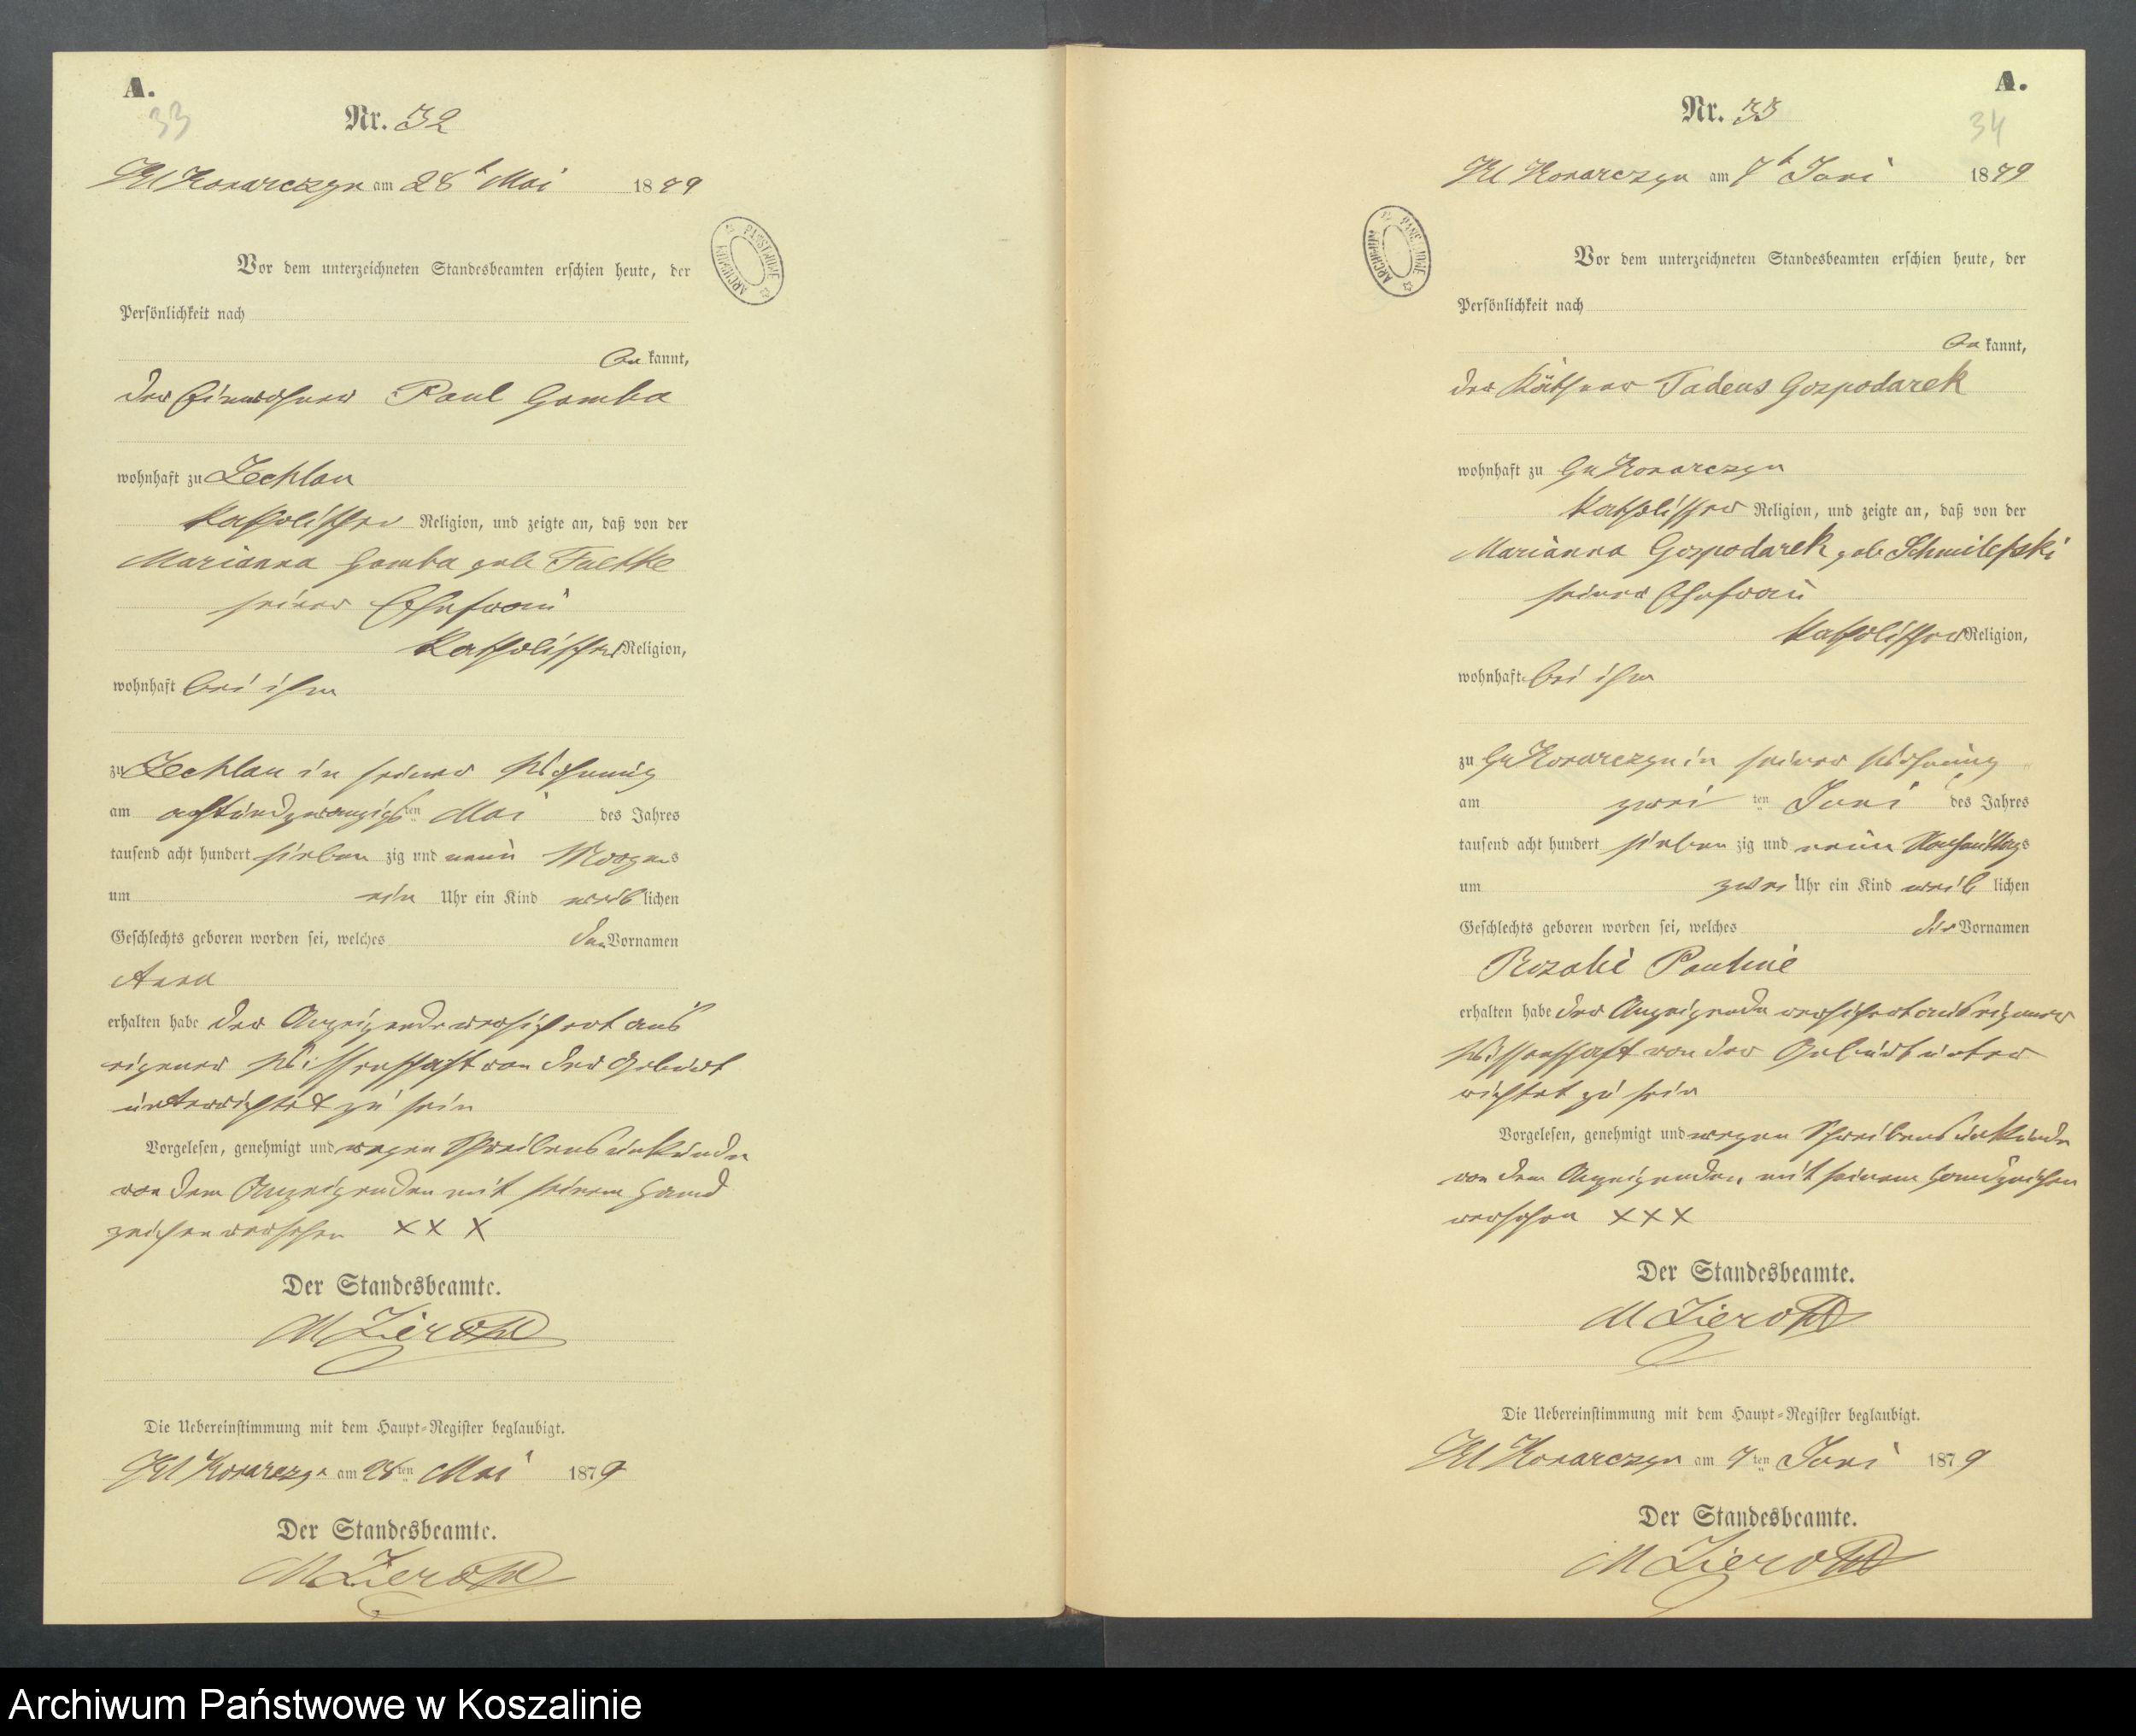 A.
33
Nr. 32
Kl Konarczyn am 28t Mai 1879
ARCHIWUM PAŃSTWOWE
Vor dem unterzeichneten Standesbeamten erschien heute, der
Persönlichkeit nach
be kannt,
der Einwohner Paul Gomba
wohnhaft zu Zechlau
katholischer Religion, und zeigte an, daß von der
Marianna Gomba geb
seiner Ehefrau
katholischer Religion,
wohnhaft bei ihm
zu Zechlau in seiner Wohnung
am achtundzwanzigsten Mai des Jahres
tausend acht hundert sieben zig und neun Morgens
um ein Uhr ein Kind weib lichen
Geschlechts geboren worden sei, welches den Vornamen
Anna
erhalten habe der Anzeigende versichert aus
eigener Wissenschaft von der Geburt
unterrichtet zu sein
Vorgelesen, genehmigt und wegen Schreibensunkunde
von dem Anzeigenden mit seinem Hand
zeichen versehen XXX
Der Standesbeamte.
M
Die Uebereinstimmung mit dem Haupt-Register beglaubigt.
Kl Konarczyn am 28ten Mai 1879
Der Standesbeamte.
M
A.
34
Nr. 33
Kl Konarczyn am 7t Juni 1879
ARCHIWUM PAŃSTWOWE
Vor dem unterzeichneten Standesbeamten erschien heute, der
Persönlichkeit nach
be kannt,
der Käthner Tadeus Gospodarek
wohnhaft zu Gr Konarczyn
katholischer Religion, und zeigte an, daß von der
Marianna Gospodarek geb
seiner Ehefrau
katholischer Religion,
wohnhaft bei ihm
zu Gr Konarczyn in seiner Wohnung
am zwei ten Juni des Jahres
tausend acht hundert sieben zig und neun Nachmittags
um zwei Uhr ein Kind weib lichen
Geschlechts geboren worden sei, welches die Vornamen
Rozalie Pauline
erhalten habe der Anzeigende versichert aus eigener
Wissenschaft von der Geburt unter
richtet zu sein
Vorgelesen, genehmigt und wegen Schreibensunkunde
von dem Anzeigenden mit seinem Handzeichen
versehen XXX
Der Standesbeamte.
M
Die Uebereinstimmung mit dem Haupt-Register beglaubigt.
Kl Konarczyn am 7ten Juni 1879
Der Standesbeamte.
M
Archiwum Państwowe w Koszalinie